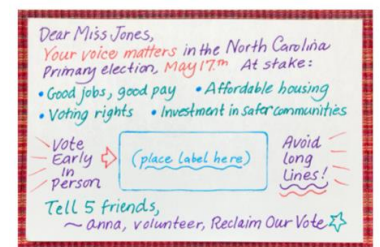 Dear Miss Jones,
Your voice matters in the North Carolina
Primary election, May 17th At stake:
• Good jobs, good pay • Affordable housing
• Voting rights • Investment in safer communities
Vote
Early
In
person
(place label here)
Avoid
long
Lines!
Tell 5 friends,
~ anna, volunteer, Reclaim Our Vote